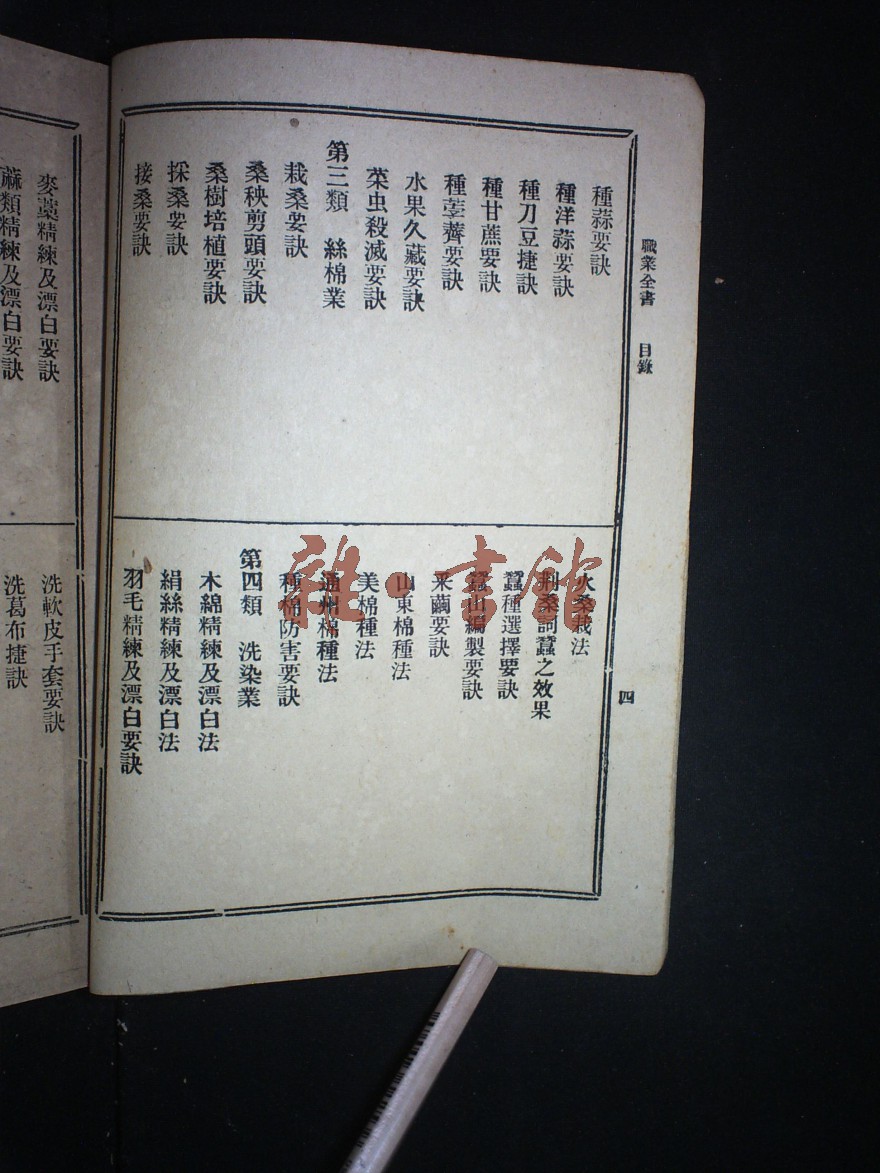 職業全書 目錄
四
種蒜要訣
種洋蒜要訣
種刀豆捷訣
種甘蔗要訣
種荸薺要訣
水果久藏要訣
菜虫殺滅要訣
第三類 絲棉業
栽桑要訣
桑秧剪頭要訣
桑樹培植要訣
採桑要訣
接桑要訣
火桑栽法
剩桑飼蠶之效果
蠶種選擇要訣
蠶山編製要訣
采繭要訣
山東棉種法
美棉種法
通州棉種法
種棉防害要訣
第四類 洗染業
木綿精練及漂白法
絹絲精練及漂白法
羽毛精練及漂白要訣
麥藁精練及漂白要訣
蔴類精練及漂白要訣
洗軟皮手套要訣
洗葛布捷訣
雜·書館